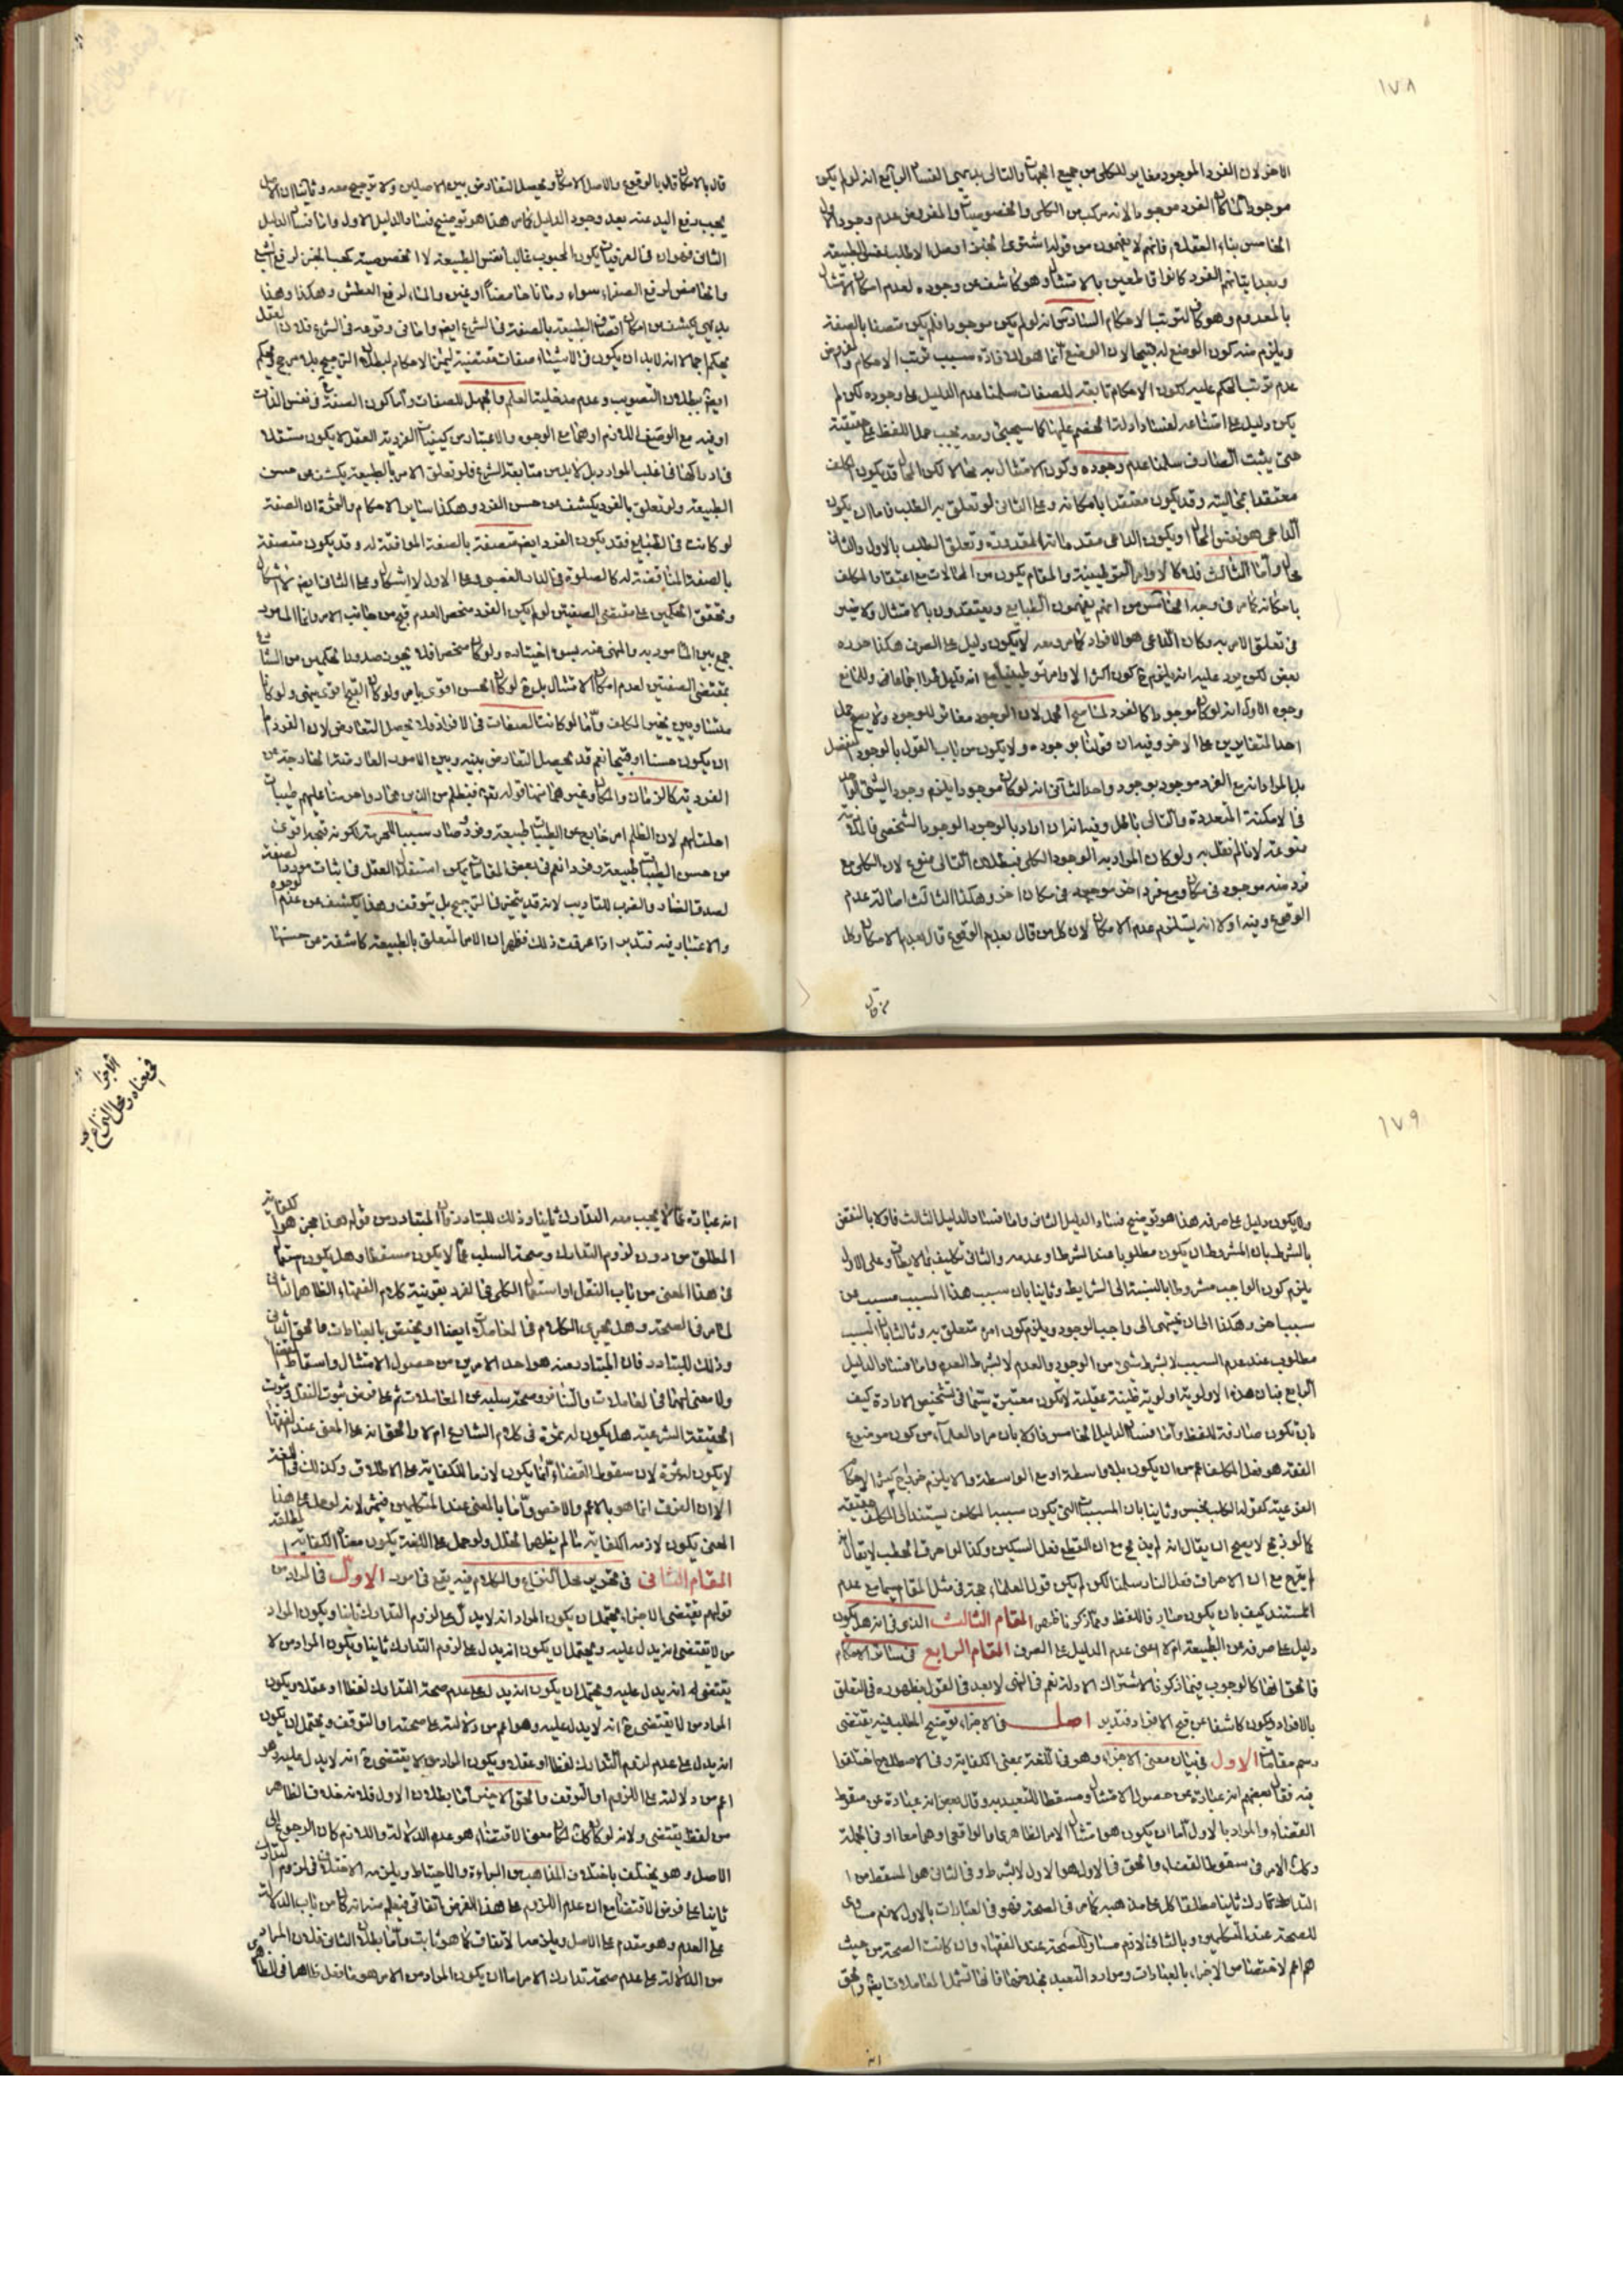 ١٧٨
الاخر لان الفرد الموجود مغاير للكلى من جميع الجهات والتالى بديهى الفساد الرابع انه لو لم يكن
موجودا لما كان الفرد موجودا لانه مركب من الكلى والخصوصيات والمفروض عدم وجود الاول
الخامس بناء العقلاء فانهم لا يفهمون من قوله اشتر لى الخبز او العسل الا طلب نفس الطبيعة
وبعد ايتانهم الفرد كانوا قاطعين بالامتثال وهو كاشف عن وجوده لعدم امكان الامتثال
بالمعدوم وهو كاف لترتب الاحكام السادس انه لو لم يكن موجودا فلم يكن متصفا بالصفة
ويلزم منه كون الوضع له قبيحا لان الوضع انما هو للافادة بسبب ترتب الاحكام والمفروض
عدم ترتب الحكم عليه لكون الاحكام تابعة للصفات سلمنا عدم الدليل على وجوده لكن لم
يكن دليل على امتناعه لفساد ادلة الخصم عليها كما سيجيئ ومعه يجب حمل اللفظ على حقيقته
حتى يثبت الصارف سلمنا عدم وجوده وكون الامتثال به محالا لكن المحال قد يكون المكلف
معتقدا بمحاليته وقد يكون معتقدا بامكانه وعلى الثانى لو تعلق به الطلب فاما ان يكون
الداعى هو نفس المحال او يكون الداعى مقدماته المقدورة وتعلق الطلب بالاول والثانى
محال واما الثالث فلا كالاوامر التوطينية والمقام يكون من المحالات مع اعتقاد المكلف
بامكانه كما مر فى وجه الخامس من انهم يفهمون الطبايع ويعتقدون بالامتثال ولا ضير
فى تعلق الامر به وكان الداعى هو الافراد كما مر ومعه لا يكون دليل على الصرف هكذا حرره
بعض لكن يرد عليه انه يلزم ح كون اكثر الاوامر توطينية مع انه قليل جدا اجماعا وللمانع
وجوه الاول انه لو كان موجودا كالفرد لما صح الحمل لان الموجود مغائر للموجود ولا يصح حمل
احد المتغايرين على الاخر وفيه ان قولنا بوجوده لا يكون من باب القول بالوجود المنفصل
بل المراد انه مع الفرد موجود بوجود واحد الثانى انه لو كان موجودا يلزم وجود الشئ الواحد
فى الامكنة المتعددة والتالى باطل وفيه انه ان اراد بالوجود الوجود الشخصى فالملازمة
ممنوعة لانا لم نقل به ولو كان المراد به الوجود الكلى فبطلان التالى ممنوع لان الكلى مع
فرد منه موجود فى مكان ومع فرد اخر موجود فى مكان اخر وهكذا الثالث اصالة عدم
الوقوع وفيه اولا انه يستلزم عدم الامكان لان كل من قال بعدم الوقوع قال بعدم الامكان وكل
من قال
قال بالامكان قال بالوقوع والاصل الامكان ويحصل التعارض بين الاصلين ولا ترجيح معه وثانيا ان الاصل
يجب رفع اليد عنه بعد وجود الدليل كما مر هذا هو توضيح فساد الدليل الاول واما فساد الدليل
الثانى فهو ان فى العرفيات يكون المحبوب غالبا نفس الطبيعة لا الخصوصية كحب الخبز لرفع الشبع
بديهى يكشف عن امكان اتصاف الطبيعة بالصفة فى الشرع ايضا واما فى وقوعه فى الشرع فلان العقل
يحكم اجمالا انه لابد ان يكون فى الاشياء صفات مقتضية لهذه الاحكام لبطلان الترجيح بلا مرجح ويحكم
ايضا ببطلان التصويب وعدم مدخلية العلم والجهل للصفات واما كون الصفة فى نفس الذات
او فيه مع الوصف اللازم او هما مع الوجوه والاعتبار من كيفيات الفردية العقل لا يكون مستقلا
فى ادراكها فى اغلب الموارد بل لابد من متابعة الشرع فلو تعلق الامر بالطبيعة يكشف عن حسن
الطبيعة ولو تعلق بالفرد يكشف عن حسن الفرد وهكذا ساير الاحكام والثمرة ان الصفة
لو كانت فى الطبايع فقد يكون الفرد ايضا متصفة بالصفة الموافقة له وقد يكون متصفة
بالصفة المناقضة له كالصلوة فى الدار الغصبى وعلى الاول لا اشكال وعلى الثانى
وتحقق الحكمين على مقتضى الصفتين لو لم يكن الفرد منحصرا لعدم قبح من جانب الامر وانما المامور
جمع بين المامور به والمنهى عنه بسوء اختياره ولو كان منحصرا فلا يجوز صدور الحكمين من الشارع
بمقتضى الصفتين لعدم امكان الامتثال بل لو كان الحسن اقوى يامر ولو كان القبح اقوى ينهى ولو كانا
متساويين يخير المكلف واما لو كانت الصفات فى الافراد فلا يحصل التعارض لان الفرد اما
ان يكون حسنا او قبيحا نعم قد يحصل التعارض بينه وبين الامور العارضة الخارجة عن
الفردية كالزمان والمكان وغيرهما منها قوله تعالى فبظلم من الذين هادوا حرمنا عليهم طيبات
احلت لهم لان الظلم امر خارج عن الطيبات طبيعة وفردا صار سببا للحرمة لكونه قبحه اقوى
من حسن الطيبات طبيعة وفردا نعم فى بعض المقامات يمكن استقلال العقل فى اثبات مورد الصفة
والاعتبار فيه فتدبر اذا عرفت ذلك فظهر ان الامر المتعلق بالطبيعة كاشفة عن حسنها
١٧٩
ولا يكون دليل على صرفه هذا هو توضيح فساد الدليل الثانى واما فساد الدليل الثالث فاولا بالنقض
بالشرط بان المشروط ان يكون مطلوبا عند الشرط او عدمه والثانى تكليف بما لا يطاق وعلى الاول
يلزم كون الواجب مشروطا بالنسبة الى الشرايط وثانيا بان سبب هذا المسبب مسبب عن
سبب اخر وهكذا الى ان ينتهى الى واجب الوجود ويلزم كون امر متعلق به وثالثا بان المسبب
مطلوب عند عدم السبب لا بشرط شئ من الوجود والعدم لا بشرط العدم واما فساد الدليل
الرابع فبان هذه الاولوية اولوية ظنية عقلية لا يكون معتبرة سيما فى تشخيص الارادة كيف
بان تكون صارفة للفظ واما فساد الدليل الخامس فاولا بان مراد العلماء من كون موضوع
الفقه هو فعل المكلف اعم من ان يكون بلا واسطة او مع الواسطة والا يلزم خراج كثير الاحكام
الفرعية كقوله الكلب نجس وثانيا بان المسببات التى يكون سببها المكلف يستند الى المكلف حقيقة
كما لو ذبح لا يصح ان يقال انه لم يذبح مع ان القطع فعل السكين وكذا لو احرق الحطب لا يقال
لم يحرق مع ان الاحراق فعل النار سلمنا لكن لم يكن قول العلماء حجة فى مثل المقام سيما مع عدم
المستند كيف بان يكون صارفا للفظ ومما ذكرنا ظهر المقام الثالث الذى فى انه هل يكون
دليل على صرفه عن الطبيعة ام لا اعنى عدم الدليل على الصرف المقام الرابع فى ساير الاحكام
فالحق انها كالوجوب فيما ذكرنا لاشتراك الادلة نعم فى النهى لا يبعد فى القول بظهوره فى التعلق
بالافراد ويكون كاشفا عن قبح الافراد فتدبر اصل فى الاجزاء توضيح المطلب فيه يقتضى
رسم مقامات الاول فى بيان معنى الاجزاء وهو فى اللغة بمعنى الكفاية وفى الاصطلاح اختلفوا
فيه فقال بعضهم انه عبارة عن حصول الامتثال ومسقطا للتعبد به وقال بعض انه عبارة عن سقوط
القضاء والمراد بالاول اما ان يكون هو امتثال الامر الظاهرى او الواقعى وهما معا او فى الجملة
وكذا الامر فى سقوط القضاء والحق فى الاول هو الاول لا بشرط وفى الثانى هو المسقط من
للصحة عند المتكلمين وبالثانى لازم مساو للصحة عند الفقهاء وان كانت الصحة من حيث
هى اعم لاختصاص الاجزاء بالعبادات وموارد التعبد بخلافها فانها تشمل المعاملات ايضا والحق
انه
الاجزاء
فى معناه ومحل النزاع فيه
انه عبارة عما لا يجب معه التدارك ثانيا وذلك للتبادر فان المتبادر من قولهم هذا مجز هو الكفاية
المطلق من دون لزوم التدارك وصحة السلب عما لا يكون مسقطا وهل يكون استعماله
فى هذا المعنى من باب النقل او استعمال الكلى فى الفرد بقرينة كلام الفقهاء الظاهر الثانى
لما مر فى الصحة وهل يجرى الكلام فى المعاملات ايضا او يختص بالعبادات فالحق الثانى
وذلك للتبادر فان المتبادر منه هو احد الامرين من حصول الامتثال واسقاط القضاء
ولا معنى لهما فى المعاملات والتنافر وصحة سلبه عن المعاملات ثم على فرض ثبوت النقل وثبوت
الحقيقة الشرعية هل يكون له ثمرة فى كلام الشارع ام لا والحق انه على المعنى عند الفقهاء
لا يكون له ثمرة لان سقوط القضاء انما يكون لازما للكفاية على الاطلاق وكذلك فى اللغة
الا ان الفرق انما هو بالاعم والاخص واما بالمعنى عند المتكلمين فيثمر لانه لو حمل على هذا
المعنى يكون لازمه الكفاية ما لم يظهر الخلل ولو حمل على اللغة يكون معناه الكفاية المطلقة
المقام الثانى فى تحرير محل النزاع والكلام فيه يقع فى امور الاول فى المراد من
قولهم يقتضى الاجزاء يحتمل ان يكون المراد انه لا يدل على لزوم التدارك ثانيا ويكون المراد
من لا يقتضى انه يدل عليه ويحتمل ان يكون انه يدل على لزوم التدارك ثانيا ويكون المراد من لا
يقتضى له انه يدل عليه ويحتمل ان يكون انه يدل على عدم صحة التدارك لفظا او عقلا ويكون
المراد من لا يقتضى ح انه لا يدل عليه وهو اعم من دلالته على صحته او التوقف ويحتمل ان يكون
انه يدل على عدم لزوم التدارك لفظا او عقلا ويكون المراد من لا يقتضى ح انه لا يدل عليه وهو
اعم من دلالته على اللزوم او التوقف والحق الاخير اما بطلان الاول فلانه خلاف الظاهر
من لفظ يقتضى ولانه لو كان كذلك لكان معنى لا اقتضاء هو عدم الدلالة واللازم كان الرجوع الى
الاصل وهو يختلف باختلاف المذاهب من البراءة والاحتياط ويلزمه الاختلاف فى لزوم التدارك
ثانيا على فرض لا اقتضاء مع ان عدم اللزوم على هذا الفرض اتفاقى فيعلم منه انه كان من باب الدلالة
على العدم وهو مقدم على الاصل ويلزمه الاتفاق كما هو ثابت واما بطلان الثانى فلان المراد
من الدلالة على عدم صحة تدارك الامر اما ان يكون المراد من الامر هو ما فعل ظاهرا فى الظاهرى